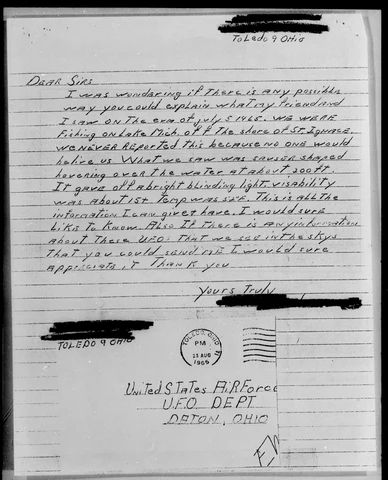 TOLEDO 9 OHIO
DEAR SIRS
I WAS WONDERING IF THERE IS ANY POSSIBLE
WAY YOU COULD EXPLAIN WHAT MY FRIEND AND
I SAW ON THE ERA OF JULY 5 1965. WE WERE
FISHING ON LAKE MICH. OFF THE SHORE OF ST. IGNACE.
WE NEVER REPORTED THIS BECAUSE NO ONE WOULD
BELIVE US. WHAT WE SAW WAS SAUSER SHAPED
HOVERING OVER THE WATER AT ABOUT 200 FT.
IT GAVE OFF A BRIGHT BLINDING LIGHT. VISABILITY
WAS ABOUT 15+ TEMP WAS 58F. THIS IS ALL THE
INFORMATION I CAN GIVE + HAVE. I WOULD SURE
LIKE TO KNOW. ALSO IF THERE IS ANY INFORMATION
ABOUT THESE UFO'S THAT WE SEE IN THE SKYS
THAT YOU COULD SEND ME I WOULD SURE
APPRICIATE IT THANK YOU
YOURS TRULY
TOLEDO 9 OHIO
TOLEDO, OHIO
PM
23 AUG
1965
UNITED STATES AIR FORCE
U.F.O. DEPT
DATON, OHIO